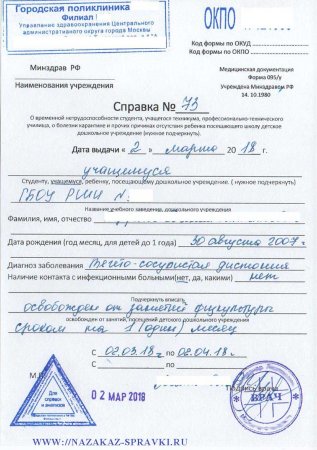 Городская поликлиника
Филиал
Управление здравоохранения Центрального
административного округа города Москвы
ОКПО
Код формы по ОКУД
Код формы по ОКПО
Минздрав РФ
Медицинская документация
Форма 095/у
Наименования учреждения
Учреждена Минздравом РФ
14. 10.1980
Справка № 73
О временной нетрудоспособности студента, учащегося техникума, профессионально-технического
училища, о болезни карантине и прочих причинах отсутствия ребенка посещающего школу детского
дошкольное учреждений (нужное подчеркнуть).
Дата выдачи « 2 » марта 2018 г.
учащемуся
Студенту, учащемуся, ребенку, посещающему дошкольное учреждение. ( нужное подчеркнуть)
ГБОУ №
Название учебного заведения, дошкольного учреждения
Фамилия, имя, отчество
Дата рождения (год месяц, для детей до 1 года) 30 августа 2007 г
Диагноз заболевания Вегето-сосудистая дистония
Наличие контакта с инфекционными больными(нет, да, какими) нет
Подчеркнуть вписать
освобожден от занятий физкультуры
освобожден от занятий, посещений детского дошкольного учреждения
сроком на 1 (один) месяц
С 02.03.18 по 02.04.18 г.
С по
М.П.
02 МАР 2018
Подпись врача
Для
справок
и анализов
ВРАЧ
WWW://NAZAKAZ-SPRAVKI.RU